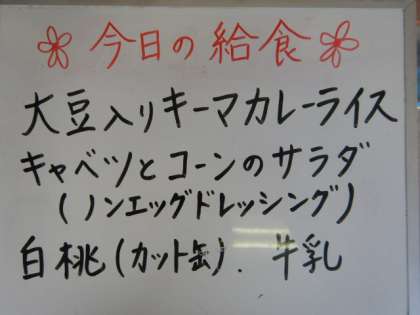 今日の給食
大豆入りキーマカレーライス
キャベツとコーンのサラダ
(ノンエッグドレッシング)
白桃(カット缶). 牛乳